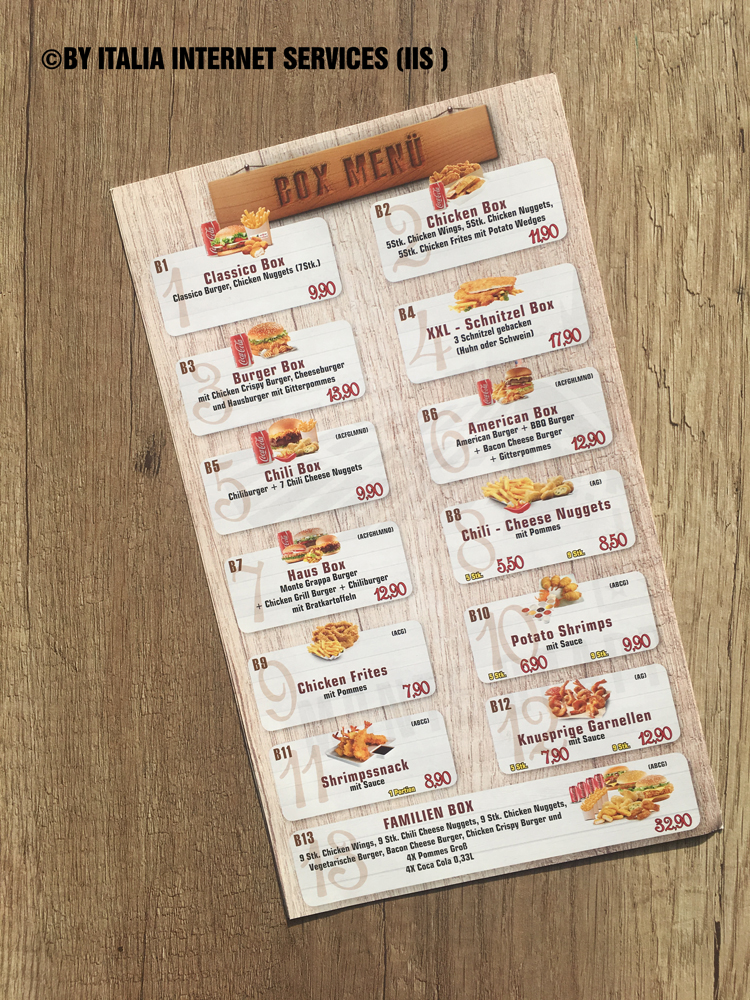 ©BY ITALIA INTERNET SERVICES (IIS )
BOX MENÜ
B1
1
Classico Box
Classico Burger, Chicken Nuggets (7Stk.)
9,90
B2
2
Chicken Box
5Stk. Chicken Wings, 5Stk. Chicken Nuggets,
5Stk. Chicken Frites mit Potato Wedges
11,90
B3
3
Burger Box
mit Chicken Crispy Burger, Cheeseburger
und Hausburger mit Gitterpommes
13,90
B4
4
XXL - Schnitzel Box
3 Schnitzel gebacken
(Huhn oder Schwein)
17,90
B5
5
(ACFGLMNO)
Chili Box
Chiliburger + 7 Chili Cheese Nuggets
9,90
B6
6
(ACFGHLMNO)
American Box
American Burger + BBQ Burger
+ Bacon Cheese Burger
+ Gitterpommes
12,90
B7
7
(ACFGHLMNO)
Haus Box
Monte Grappa Burger
+ Chicken Grill Burger + Chiliburger
mit Bratkartoffeln
12,90
B8
8
(AG)
Chili - Cheese Nuggets
mit Pommes
5 Stk. 5,50
9 Stk. 8,50
B9
9
(ACG)
Chicken Frites
mit Pommes
7,90
B10
10
(ABCG)
Potato Shrimps
mit Sauce
5 Stk. 6,90
9 Stk. 9,90
B11
11
(ABCG)
Shrimpssnack
mit Sauce
1 Portion 8,90
B12
12
(AG)
Knusprige Garnellen
mit Sauce
5 Stk. 7,90
9 Stk. 12,90
B13
13
(ABCG)
FAMILIEN BOX
9 Stk. Chicken Wings, 9 Stk. Chili Cheese Nuggets, 9 Stk. Chicken Nuggets,
Vegetarische Burger, Bacon Cheese Burger, Chicken Crispy Burger und
4X Pommes Groß
4X Coca Cola 0,33L
32,90